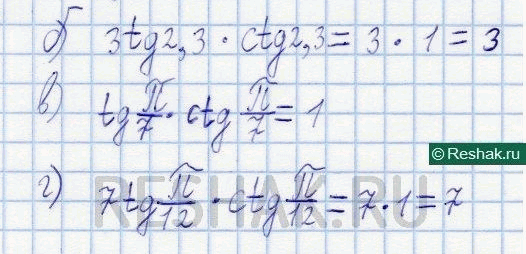 б) 3tg2,3 · ctg2,3 = 3 · 1 = 3
в) tg π/7 · ctg π/7 = 1
© Reshak.ru
г) 7tg π/12 · ctg π/12 = 7 · 1 = 7
RESHAK.RU